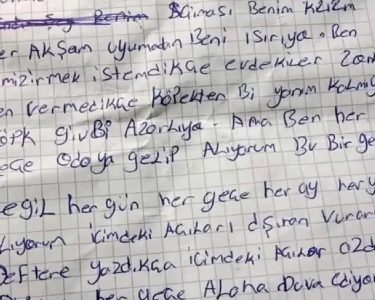 Benim BCiması Benim Kızım
er AKŞam uyumadan Beni ısırıya. Ben
mizirmek istemdikçe evdekiler
en vermedikçe Köpekten Bi yanım
köpk givBi Azorlıya. Ama Ben her
odoya gelip ALıyorum Bu Bir ge
egiL her gün her gece her ay her y
Lıyorum içimdeki Acıları dşıran vurar
DefTere yazdıkça içimdeki Acılar azd
her gece ALaha Duva ediyor